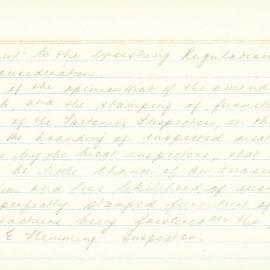 to the existing Regulation
consideration
of the opinion that if the amend
and the stamping of furniture
of the Factories Inspectors, in th
the branding of inspected meat
by the meat inspectors, that
be little chance of an evas
and less likelihood of
perfectly stamped furniture
being foistered on the
E Flemming Inspector.